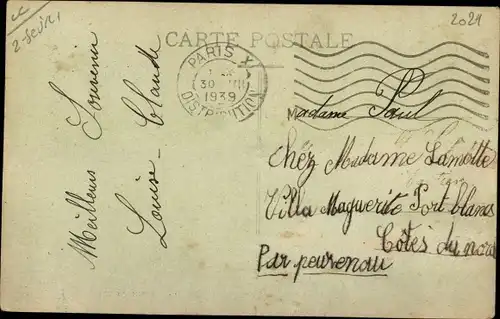 2 Sevri
2021
CARTE POSTALE
PARIS X
30 VII
1939
DISTRIBUTION
Meilleurs Souvenir
Louise - Claude
Madame Paul
Chéz Madame Lamotte
Villa Maguerite Port blanc
Côtes du nord
Par peurenau